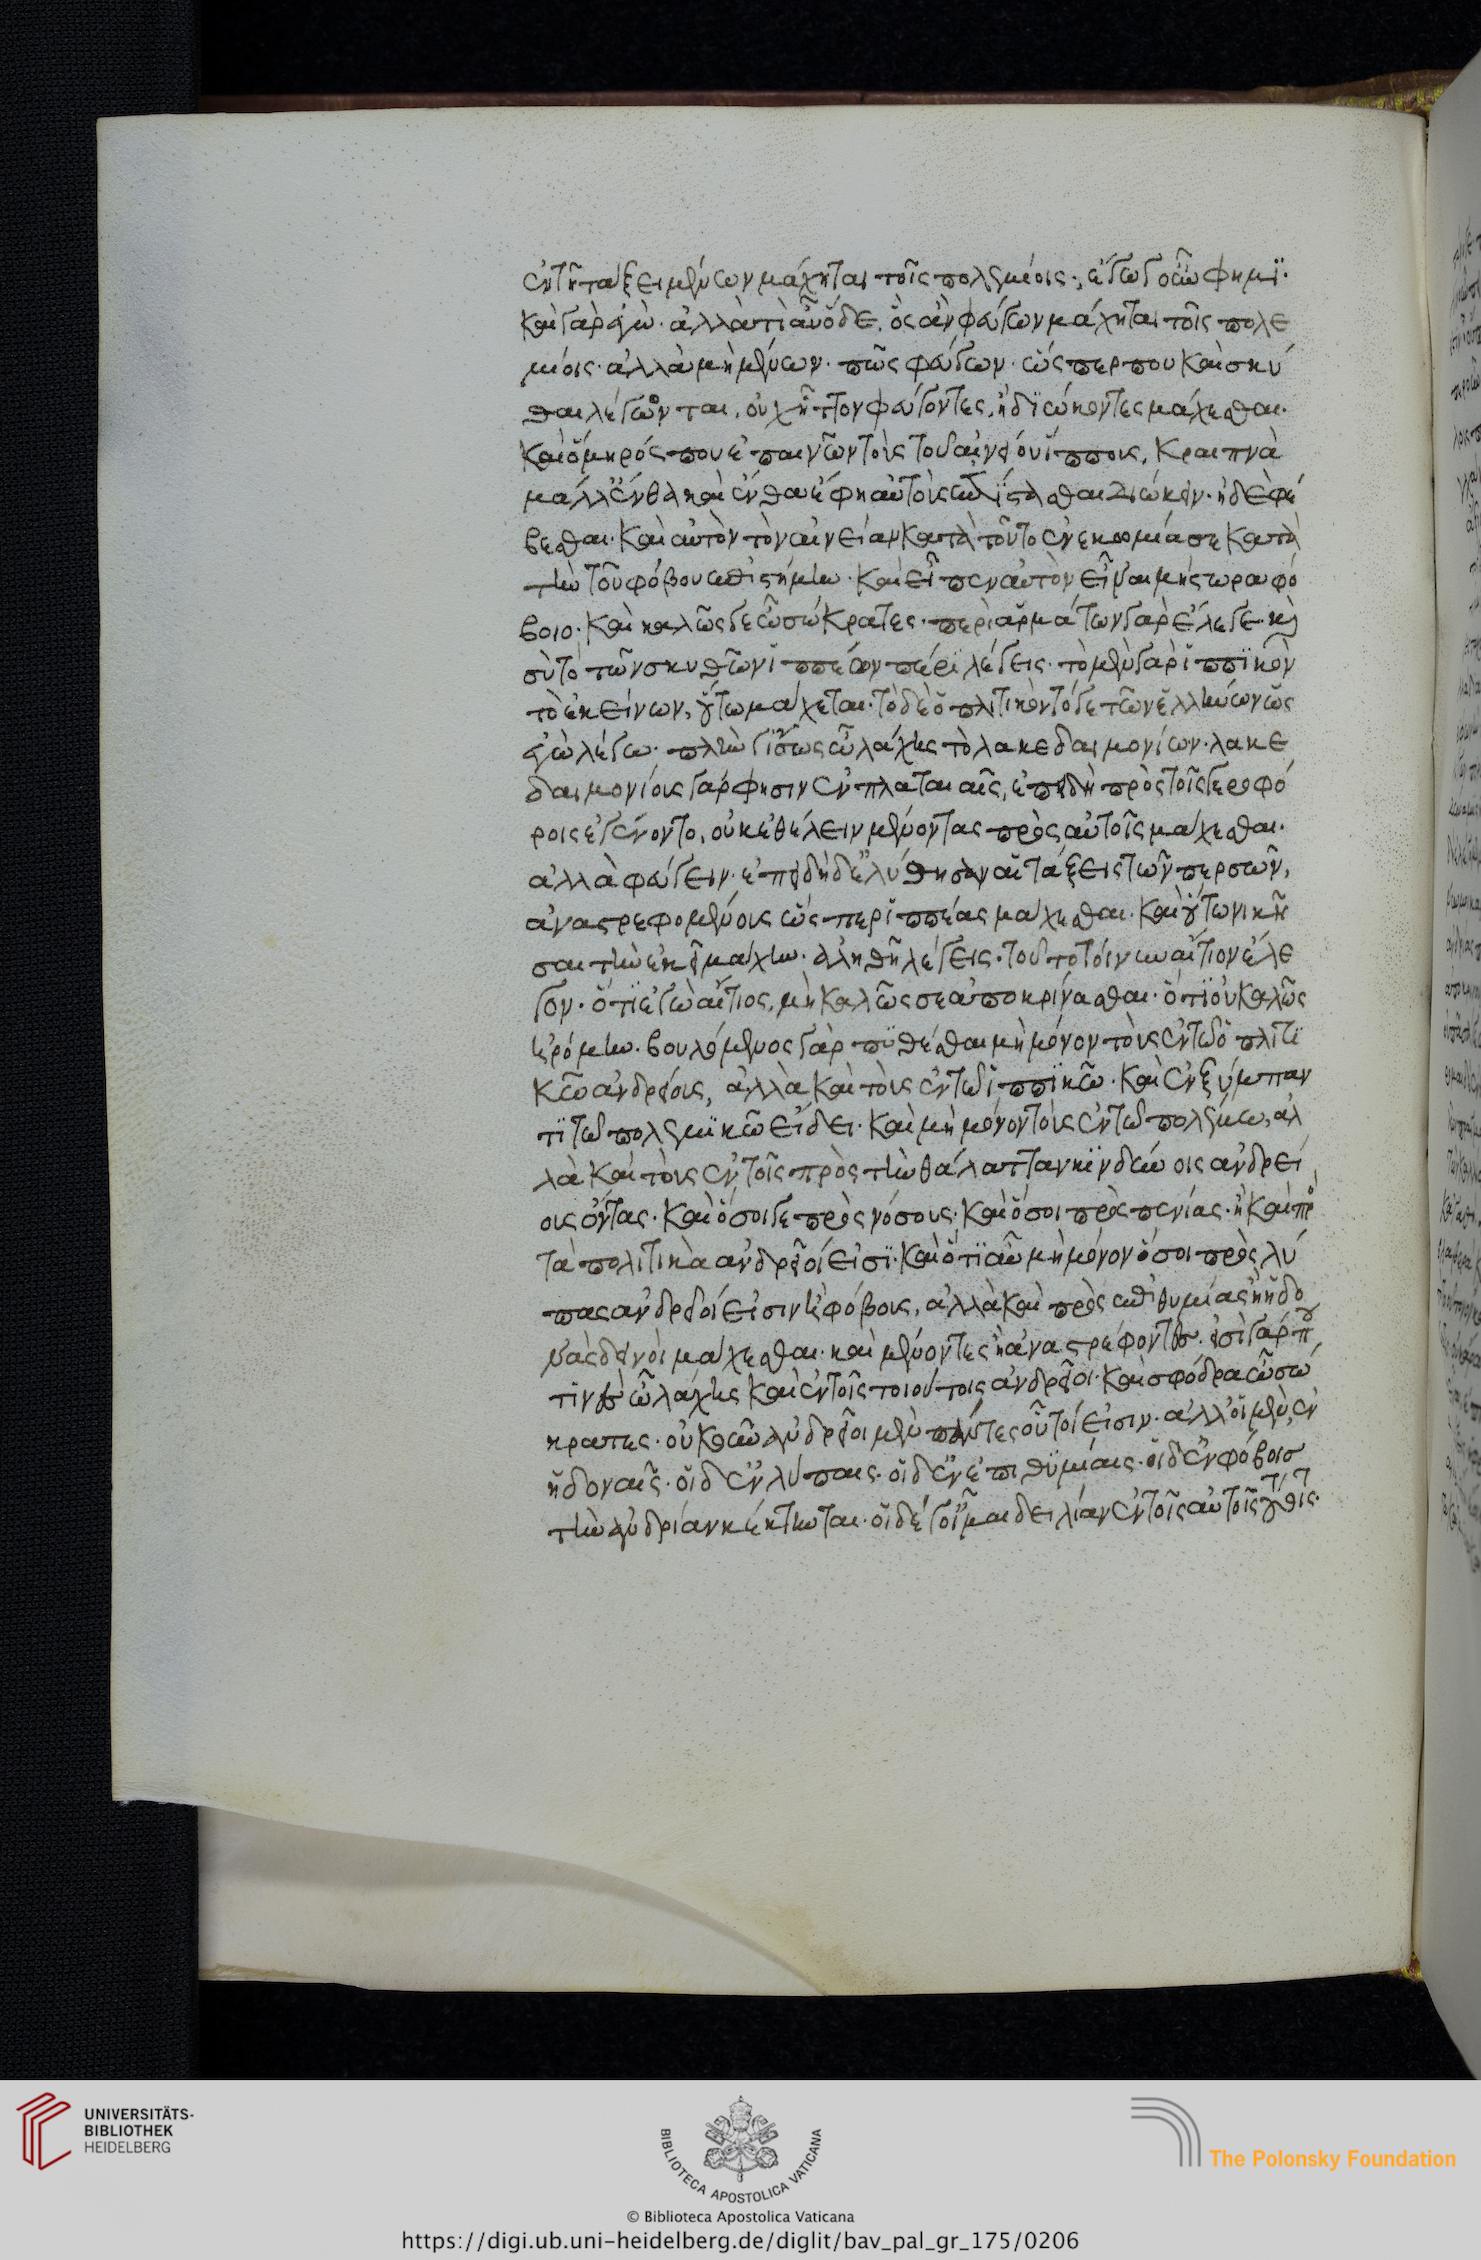 ἐν τῆ τάξει μένων μάχηται τοῖς πολεμίοις· ἐγὼ γοῦν φημί·
καὶ γὰρ ἐγώ· ἀλλὰ τί αὖ ὅδε, ὃς ἂν φεύγων μάχηται τοῖς πολε
μίοις· ἀλλὰ μὴ μένων· πῶς φεύγων· ὥς περ που καὶ σκύ
θαι λέγονται, οὐχ ἧττον φεύγοντες, ἢ διώκοντες μάχεσθαι·
καὶ ὅμηρός που ἐπαινῶν τοὺς τοῦ αἰνείου ἵππους, κραιπνὰ
μάλ' ἔνθα καὶ ἔνθα ἔφη αὐτοὺς ἐπίστασθαι διώκειν· ἠδὲ φέ
βεσθαι· καὶ αὐτὸν τὸν αἰνείαν κατὰ τοῦτο ἐνεκωμίασε κατὰ
τὴν τοῦ φόβου ἐπιστήμην· καὶ εἶπεν αὐτὸν εἶναι μήστωρα φό
βοιο· καὶ καλῶς γε ὦ σώκρατες· περὶ ἁρμάτων γὰρ ἔλεγε· καὶ
σὺ τὸ τῶν σκυθῶν ἱππέων πέρι λέγεις· τὸ μὲν γὰρ ἱππικὸν
τὸ ἐκείνων, οὕτω μάχεται· τὸ δὲ ὁπλιτικὸν τό γε τῶν ἑλλήνων ὡς
ἐγὼ λέγω· πλήν γ' ἴσως ὦ λάχης τὸ λακεδαιμονίων· λακε
δαιμονίους γάρ φησιν ἐν πλαταιαῖς, ἐπειδὴ πρὸς τοῖς γεροφό
ροις ἐγένοντο, οὐκ ἐθέλειν μένοντας πρὸς αὐτοῖς μάχεσθαι·
ἀλλὰ φεύγειν· ἐπειδὴ δ' ἐλύθησαν αἱ τάξεις τῶν περσῶν,
ἀναστρεφομένους ὥς περ ἱππέας μάχεσθαι· καὶ οὕτω νικῆ
σαι τὴν ἐκεῖ μάχην· ἀληθῆ λέγεις· τοῦτο τοίνυν αἴτιον ἔλε
γον· ὅτι ἐγὼ αἴτιος, μὴ καλῶς σε ἀποκρίνασθαι· ὅτι οὐ καλῶς
ἠρόμην· βουλόμενος γάρ πυθέσθαι μὴ μόνον τοὺς ἐν τῶ ὁπλιτι
κῶ ἀνδρείους, ἀλλὰ καὶ τοὺς ἐν τῶ ἱππικῶ· καὶ ἐν ξύμπαν
τι τῶ πολεμικῶ εἴδει· καὶ μὴ μόνον τοὺς ἐν τῶ πολέμω, ἀλ
λὰ καὶ τοὺς ἐν τοῖς πρὸς τὴν θάλατταν κινδύνοις ἀνδρεί
ους ὄντας· καὶ ὅσοι γε πρὸς νόσους· καὶ ὅσοι πρὸς πενίας· ἢ καὶ πρὸς
τὰ πολιτικὰ ἀνδρεῖοί εἰσι· καὶ ὅτι αὖ μὴ μόνον ὅσοι πρὸς λύ
πας ἀνδρεῖοί εἰσιν ἢ φόβους, ἀλλὰ καὶ πρὸς ἐπιθυμίας ἢ ἡδο
νὰς δεινοὶ μάχεσθαι· καὶ μένοντες ἢ ἀναστρέφοντες· εἰσὶ γάρ που
τινὲς ὦ λάχης καὶ ἐν τοῖς τοιούτοις ἀνδρεῖοι· καὶ σφόδρα ὦ σώ
κρατες· οὐκοῦν ἀνδρεῖοι μὲν πάντες οὗτοί εἰσιν· ἀλλ' οἱ μὲν, ἐν
ἡδοναῖς· οἱ δ' ἐν λύπαις· οἱ δ' ἐν ἐπιθυμίαις· οἱ δ' ἐν φόβοις
τὴν ἀνδρίαν κέκτηνται· οἱ δέ γ' οἶμαι δειλίαν ἐν τοῖς αὐτοῖς τούτοις·
UNIVERSITÄTS-
BIBLIOTHEK
HEIDELBERG
BIBLIOTECA APOSTOLICA VATICANA
The Polonsky Foundation
© Biblioteca Apostolica Vaticana
https://digi.ub.uni-heidelberg.de/diglit/bav_pal_gr_175/0206